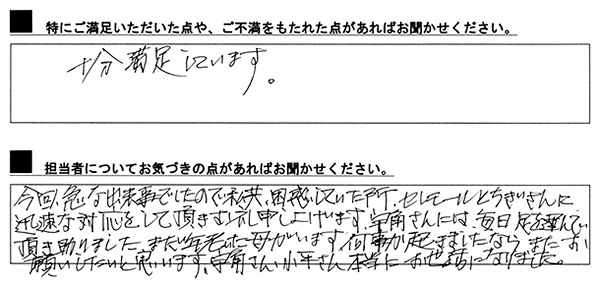 ■ 特にご満足いただいた点や、ご不満をもたれた点があればお聞かせください。
十分満足しています。
■ 担当者についてお気づきの点があればお聞かせください。
今回、急な出来事でしたので私共、困惑していた所、セレモールとちぎさんに
迅速な対応をして頂きお礼申し上げます。宇角さんには、毎日足を運んで
頂き助りました。まだ年老いた母がいます。何事か起きましたなら、またお
願いしたいと思います。宇角さん、小平さん、本当にお世話になりました。